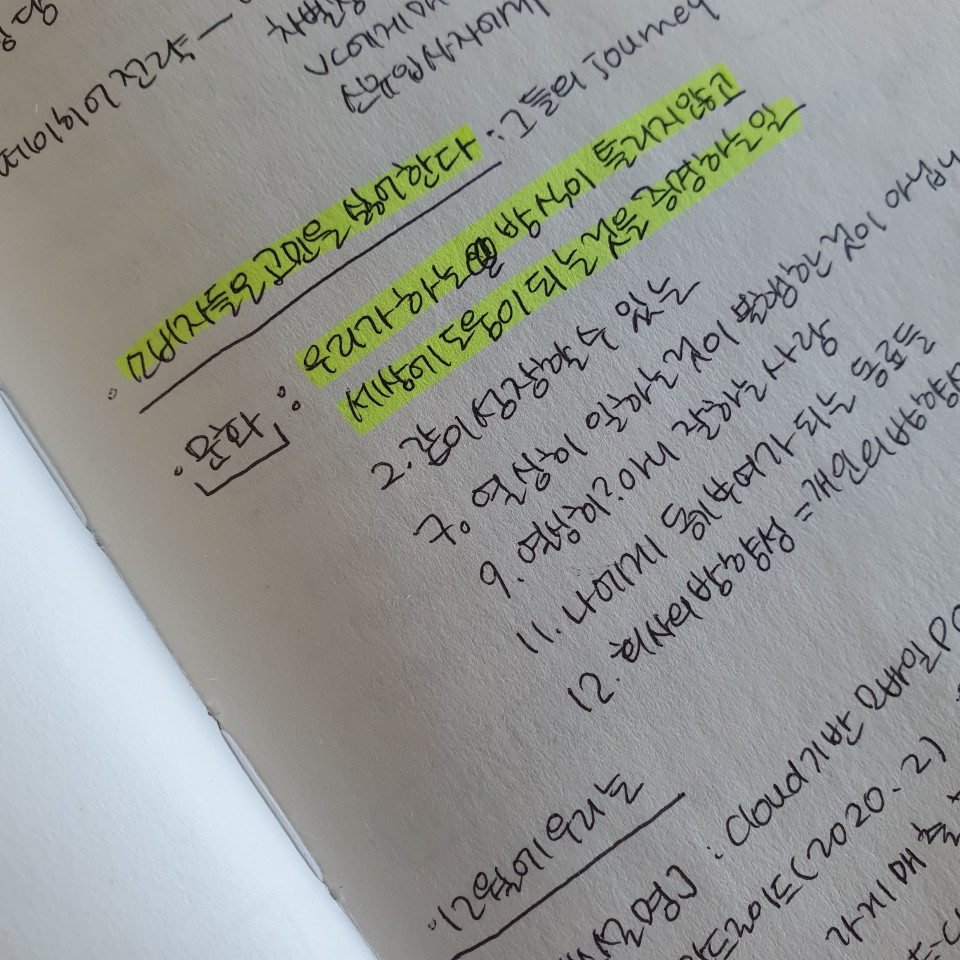 차별성
VC에게 매
전략 —
신규입사자에게
· 소비자들은 고객의 경험을 한다 : 그들의 Journey
· 문화 : 우리가 하는 방식이 틀리지 않고
세상에 도움이 되는 것을 증명하는 일
2. 같이 성장할 수 있는
7. 열심히 일하는 것이 불행한 것이 아닙니
9. 열심히? 아니 잘하는 사람
11. 나에게 동기부여가 되는 동료들
12. 회사의 방향성 = 개인의 방향성
· 12월에 우리는
설명] : Cloud기반 모바일 PO
안드로이드 (2020. 2)